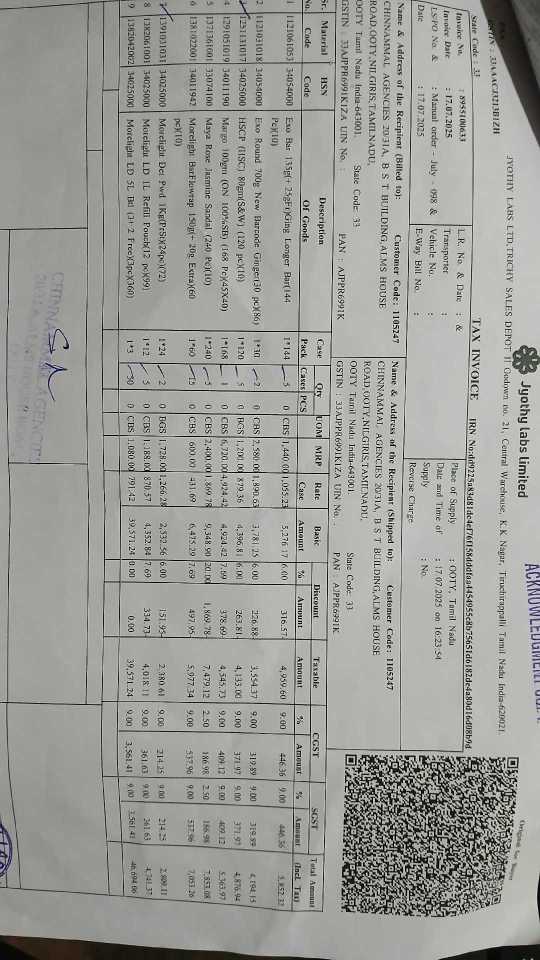 ACKNOWLEDGMENT COPY
Jyothy Labs Limited
Original for Buyer
JYOTHY LABS LTD,TRICHY SALES DEPOT II Godown no. 21, Central Warehouse, K.K Nagar, Tiruchirappalli Tamil Nadu India-620021.
GSTIN : 33AAACZ3213B1ZH
State Code : 33
TAX INVOICE
Invoice No. : 8955100633
Invoice Date : 17.07.2025
LSPO No. & : Manual order - July - 098 &
Date : 17.07.2025
L.R. No. & Date : &
Transporter :
Vehicle No. :
E-Way Bill No. :
Place of Supply : OOTY, Tamil Nadu
Date and Time of : 17.07.2025 on 16:23:54
Supply
Reverse Charge : No.
Name & Address of the Recipient (Billed to): Customer Code: 1105247
CHINNAMMAL AGENCIES 20/31A, B S T BUILDING,ALMS HOUSE
ROAD,OOTY,NILGIRIS,TAMILNADU,
OOTY Tamil Nadu India-643001. State Code: 33
GSTIN : 33AJPPR6991K1ZA UIN No. : PAN : AJPPR6991K
Name & Address of the Recipient (Shipped to): Customer Code: 1105247
CHINNAMMAL AGENCIES 20/31A, B S T BUILDING,ALMS HOUSE
ROAD,OOTY,NILGIRIS,TAMILNADU,
OOTY Tamil Nadu India-643001 State Code: 33
GSTIN : 33AJPPR6991K1ZA UIN No. PAN : AJPPR6991K
Sr. No. Material Code HSN Code Description Of Goods Case Pack Qty Cases PCS UOM MRP Rate Case Basic Amount Discount % Amount Taxable Amount CGST % Amount SGST % Amount Total Amount (Incl. Tax)
1 1121061053 34054000 Exo Bar 135g(+ 25gFr)Ging Longer Bar(144 1*144 5 0 CBS 1,440.00 1,055.23 5,276.17 6.00 316.57- 4,959.60 9.00 446.36 9.00 446.36 5,852.32
Pc)(10)
2 1123031018 34054000 Exo Round 700g New Barcode Ginger(30 pc)(86) 1*30 2 0 CBS 2,580.00 1,890.63 3,781.25 6.00 226.88- 3,554.37 9.00 319.89 9.00 319.89 4,194.15
1251131017 34025000 HSCP (IISC) 80gm(S&W) (120 pc)(10) 1*120 5 0 BGS 1,200.00 879.36 4,396.81 6.00 263.81- 4,133.00 9.00 371.97 9.00 371.97 4,876.94
4 1291051019 34011190 Margo 100gm (ON 100%SB) (168 Pc)(45)(X40) 1*168 1 0 CBS 6,720.00 4,924.42 4,924.42 7.69 378.69 4,545.73 9.00 409.12 9.00 409.12 5,363.97
5 1371361001 33074100 Maya Rose Jasmine Sandal (240 Pc)(10) 1*240 5 0 CBS 2,400.00 1,869.78 9,348.90 20.00 1,869.78- 7,479.12 2.50 186.98 2.50 186.98 7,853.08
6 1381022001 34011942 Morelight BarFlowrap 150g(+ 20g Extra)(60 1*60 15 0 CBS 600.00 431.69 6,475.29 7.69 497.95 5,977.34 9.00 537.96 9.00 537.96 7,053.26
pc)(10)
1391021031 34025000 Morelight Det Pwd 1Kg(PrSt)(24pc)(72) 1*24 2 0 BGS 1,728.00 1,266.28 2,532.56 6.00 151.95- 2,380.61 9.00 214.25 9.00 214.25 2,809.11
8 1382061001 34025000 Morelight LD 1L Refill Pouch(12 pc)(99) 1*12 5 0 CBS 1,188.00 870.57 4,352.84 7.69 334.73- 4,018.11 9.00 361.63 9.00 361.63 4,741.37
9 1382042002 34025000 Morelight LD 5L Btl (3+ 2 Free)(3pc)(360) 1*3 50 0 CBS 1,080.00 791.42 39,571.24 0.00 0.00 39,571.24 9.00 3,561.41 9.00 3,561.41 46,694.06